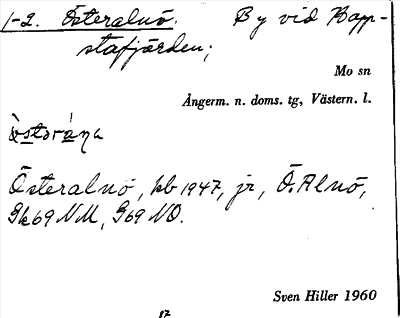 1-2. Österalnö. By vid Happ-
stafjärden;
Mo sn
Ångerm. n. doms. tg, Västern. l.
Österalnö, kb 1947, jr, Ö. Alnö,
Gk69 NM, G69 NO.
Sven Hiller 1960
17